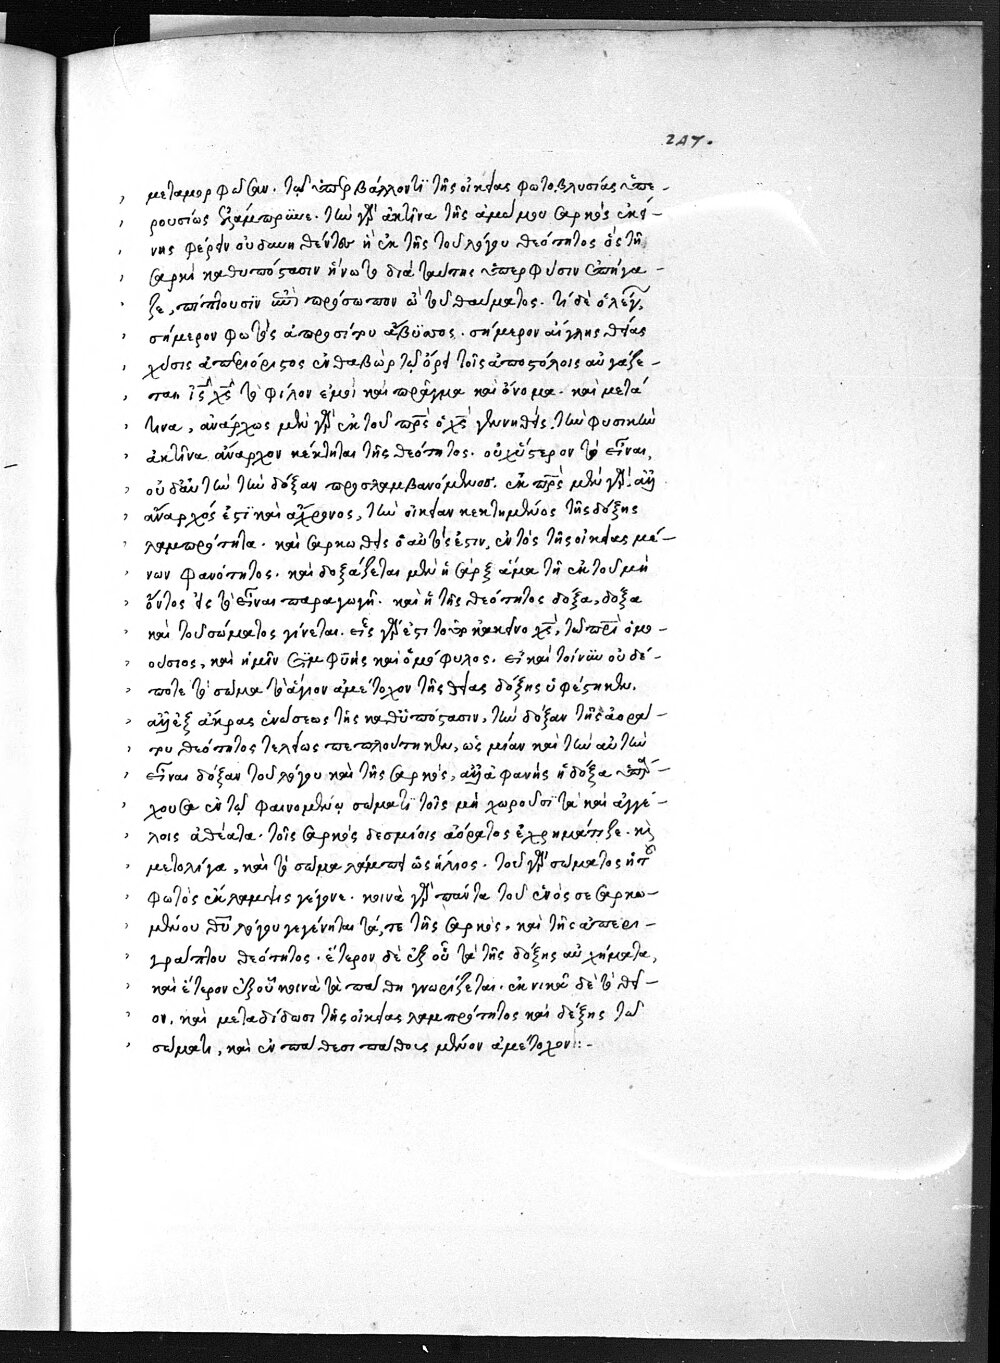 247.
μεταμορφώσιν. τῶ ὑπερβάλλοντι τῆς οἰκείας φωτοβλυσίας ὑπε-
ρουσίως ἐξάμπρυνε. τὴν γὰρ ἀκτῖνα τῆς ἀμώμου σαρκὸς ἐκεί-
νης φέρειν οὐ δυνηθέντων ἢ ἐκ τῆς τοῦ λόγου θεότητος ὃς τῆ
σαρκὶ καθυπόστασιν ἥνωτο διὰ ταύτης ὑπερφύσιν ἐπήγα-
ζε, πίπτουσιν ἐπὶ πρόσωπον ὢ τοῦ θαύματος. τί δὲ ὁ λέγει,
σήμερον φωτὸς ἀπροσίτου ἄβυσσος. σήμερον αἴγλης θείας
χύσις ἀπεριόριστος ἐν θαβὼρ τῶ ὄρει τοῖς ἀποστόλοις αὐγάζε-
ται ἰς χς τὸ φίλον ἐμοὶ καὶ πρᾶγμα καὶ ὄνομα. καὶ μετά
τινα, ἀνάρχως μὲν γὰρ ἐκ τοῦ πρς ὁ χς γεννηθεὶς, τὴν φυσικὴν
ἀκτῖνα ἄναρχον κέκτηται τῆς θεότητος. οὐχ ὕστερον τὸ εἶναι,
οὐδ' αὖ τὴν τὴν δόξαν προσλαμβανόμενος. ἐκ πρς μὲν γὰρ, ἀλλ'
ἄναρχός ἐστι καὶ ἄχρονος, τὴν οἰκείαν κεκτημένος τῆς δόξης
λαμπρότητα. καὶ σαρκωθεὶς ὁ αὐτός ἐστιν, ἐντὸς τῆς οἰκείας μέ-
νων φανότητος. καὶ δοξάζεται μὲν ἡ σὰρξ ἅμα τῆ ἐκ τοῦ μὴ
ὄντος εἰς τὸ εἶναι παραγωγῆ. καὶ ἡ τῆς θεότητος δόξα, δόξα
καὶ τοῦ σώματος γίνεται. εἷς γάρ ἐστι τοῦτο κἀκεῖνο χς, τῶ πρὶ ὁμο-
ούσιος, καὶ ἡμῖν συμφυὴς καὶ ὁμόφυλος. εἰ καὶ τοίνυν οὐδέ-
ποτε τὸ σῶμα τὸ ἅγιον ἀμέτοχον τῆς θείας δόξης ὑφέστηκεν,
ἀλλ' ἐξ ἄκρας ἑνώσεως τῆς καθυπόστασιν, τὴν δόξαν τῆς ἀορά-
του θεότητος τελείως πεπλούτηκεν, ὡς μίαν καὶ τὴν αὐτὴν
εἶναι δόξαν τοῦ λόγου καὶ τῆς σαρκὸς, ἀλλ' ἀφανὴς ἡ δόξα ὑπάρ-
χουσα ἐν τῶ φαινομένω σώματι τοῖς μὴ χωροῦσι τὰ καὶ ἀγγέ-
λοις ἀθέατα. τοῖς σαρκὸς δεσμίοις ἀόρατος ἐχρημάτιζε. καὶ
μετολίγα, καὶ τὸ σῶμα λάμπει ὡς ἥλιος. τοῦ γὰρ σώματος ἡ τοῦ
φωτὸς ἔκλαμψις γέγονε. κοινὰ γὰρ πάντα τοῦ ἑνὸς σεσαρκω-
μένου θυ λόγου γεγένηται τά, τε τῆς σαρκὸς. καὶ τῆς ἀπερι-
γράπτου θεότητος. ἕτερον δὲ ἐξ οὗ τὰ τῆς δόξης αὐχήματα,
καὶ ἕτερον ἐξ οὗ κοινὰ τὰ πάθη γνωρίζεται. ἐκνικᾶ δὲ τὸ θεῖ-
ον, καὶ μεταδίδωσι τῆς οἰκείας λαμπρότητος καὶ δόξης τῶ
σώματι, καὶ ἐν πάθεσι πάθους μένον ἀμέτοχον:-